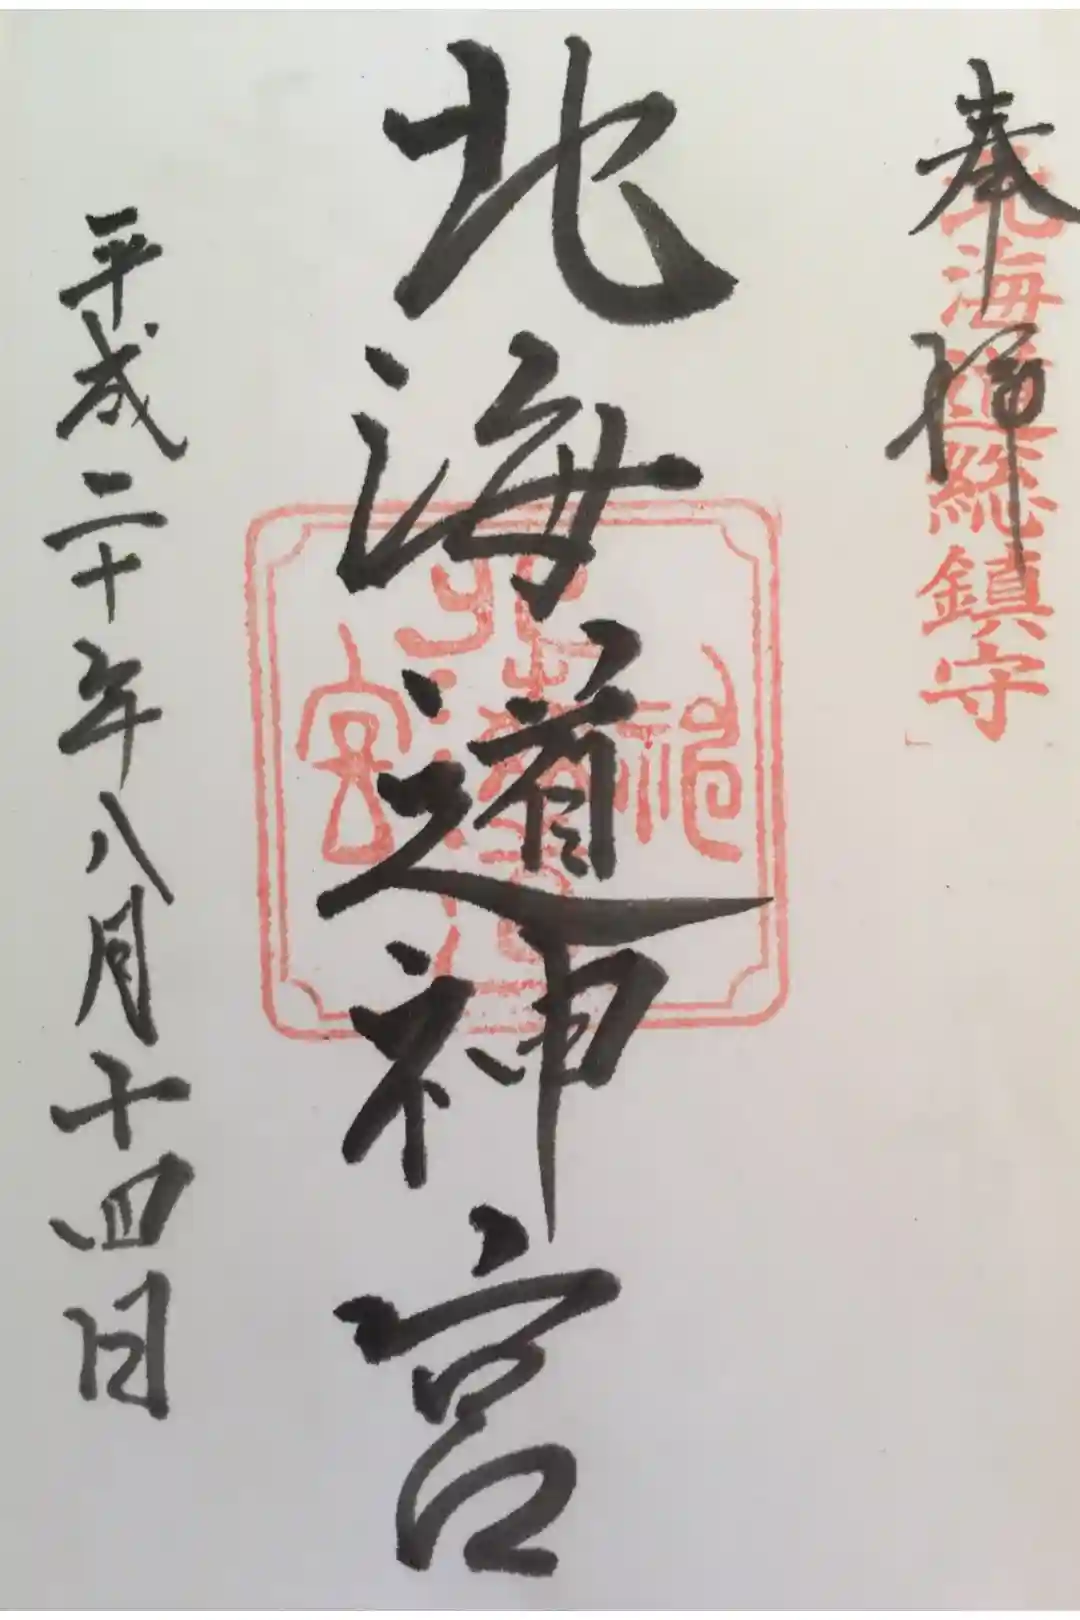 奉拝
北海道総鎮守
北海道神宮
平成二十年八月十四日